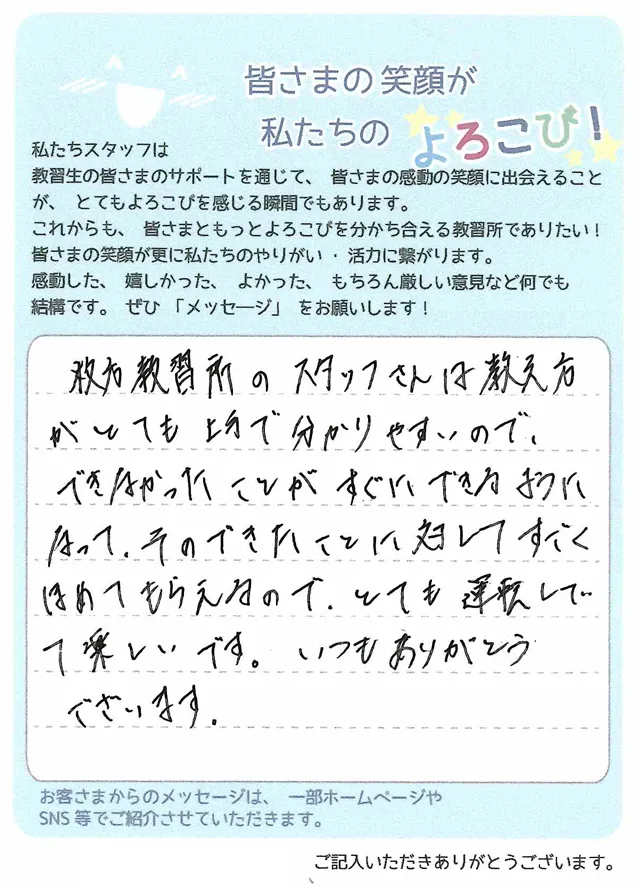 皆さまの笑顔が
私たちの よろこび!
私たちスタッフは
教習生の皆さまのサポートを通じて、 皆さまの感動の笑顔に出会えること
が、 とてもよろこびを感じる瞬間でもあります。
これからも、 皆さまともっとよろこびを分かち合える教習所でありたい!
皆さまの笑顔が更に私たちのやりがい・活力に繋がります。
感動した、 嬉しかった、 よかった、 もちろん厳しい意見など何でも
結構です。 ぜひ 「メッセージ」 をお願いします!
枚方教習所のスタッフさんは教え方
がとても上手で分かりやすいので、
できなかったことがすぐにできるように
なって、そのできたことに対してすごく
ほめてもらえるので、とても運転してで
て楽しいです。いつもありがとう
ございます。
お客さまからのメッセージは、 一部ホームページや
SNS等でご紹介させていただきます。
ご記入いただきありがとうございます。